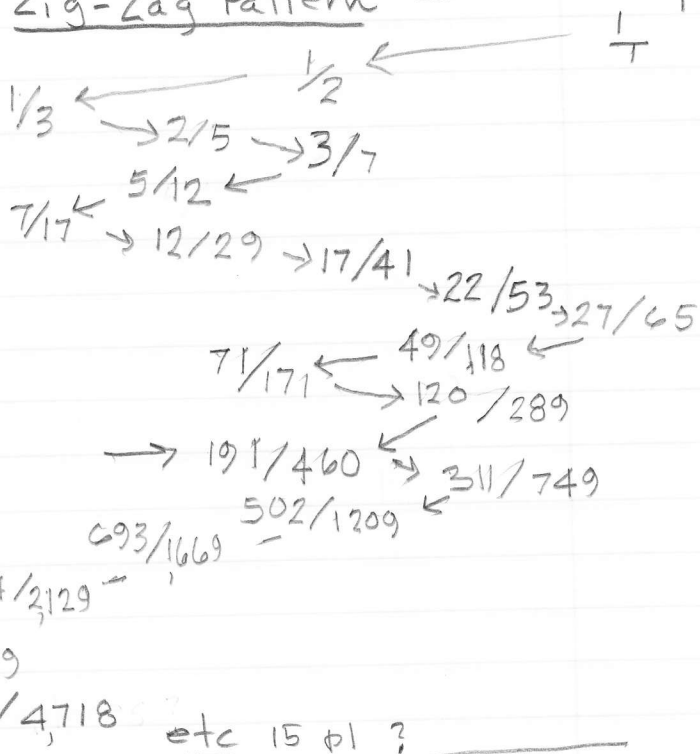 Zig-Zag Pattern
1/2 ← 1/1
1/3 ←
→ 2/5 → 3/7
5/12 ←
7/17 ←
→ 12/29 → 17/41 → 22/53 → 27/65
71/171 ← 49/118 ←
→ 120/289
→ 191/460 ←
→ 311/749
502/1209 ←
693/1,669 –
/2,129 –
9
/4,718 etc 15 pl ?